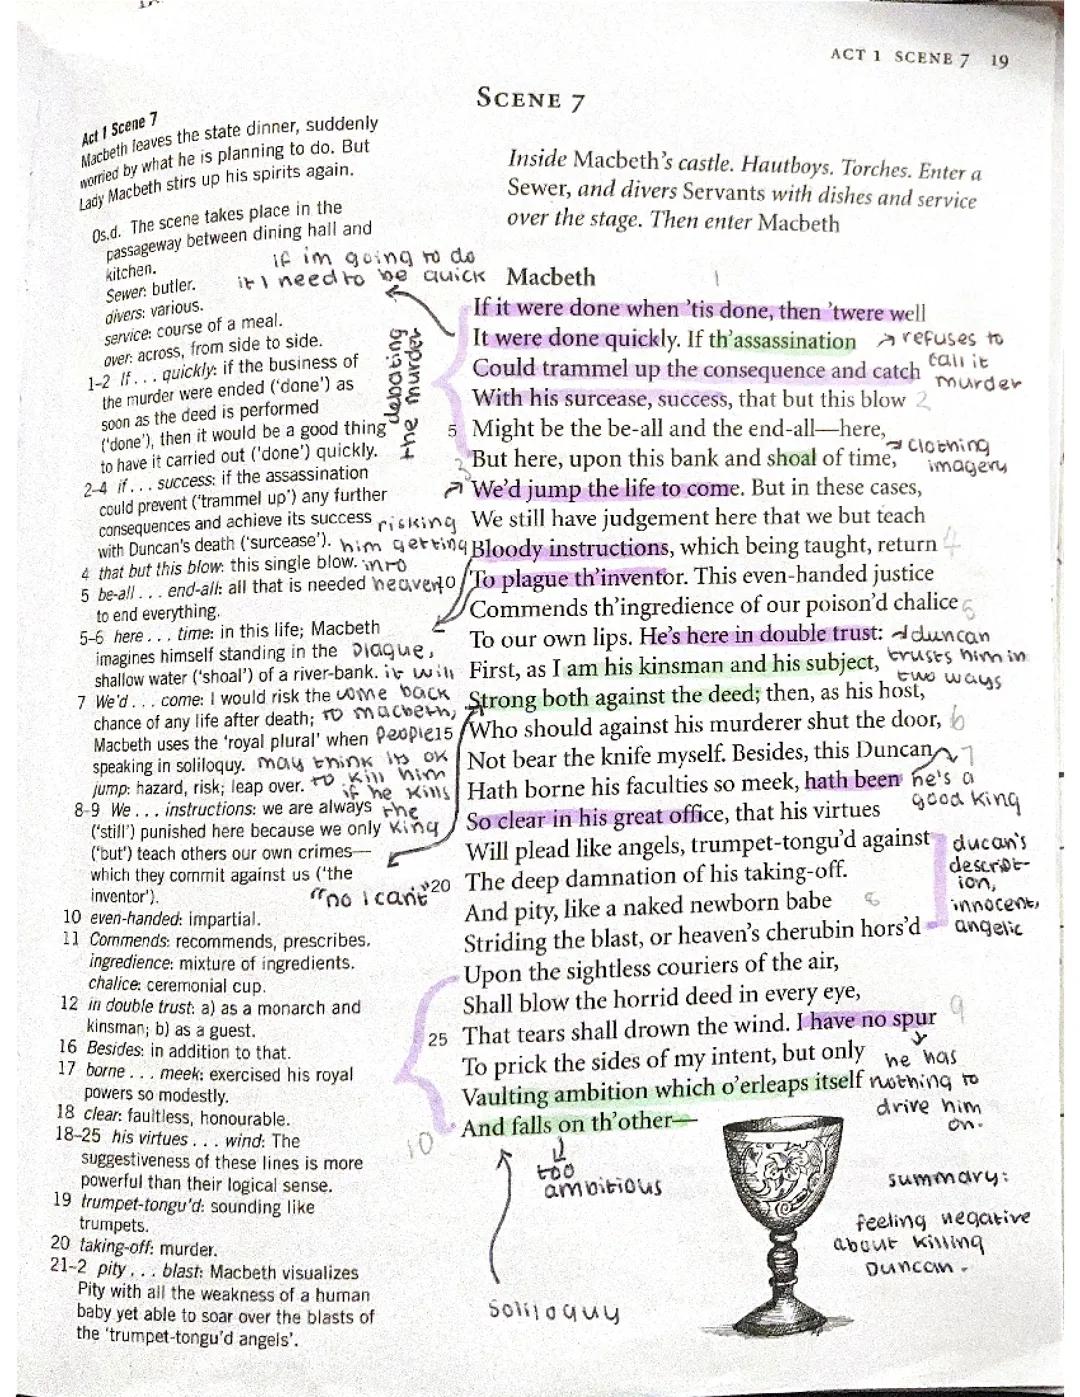 ACT 1 SCENE 7 19
SCENE 7
Act 1 Scene 7
Macbeth leaves the state dinner, suddenly
worried by what he is planning to do. But
Lady Macbeth stirs up his spirits again.
0s.d. The scene takes place in the
passageway between dining hall and
kitchen.
Sewer: butler.
divers: various.
service: course of a meal.
over: across, from side to side.
1-2 If . . . quickly: if the business of
the murder were ended ('done') as
soon as the deed is performed
('done'), then it would be a good thing
to have it carried out ('done') quickly.
2-4 if . . . success: if the assassination
could prevent ('trammel up') any further
consequences and achieve its success
with Duncan's death ('surcease').
4 that but this blow: this single blow.
5 be-all . . . end-all: all that is needed
to end everything.
5-6 here . . . time: in this life; Macbeth
imagines himself standing in the
shallow water ('shoal') of a river-bank.
7 We'd . . . come: I would risk the
chance of any life after death;
Macbeth uses the 'royal plural' when
speaking in soliloquy.
jump: hazard, risk; leap over.
8-9 We . . . instructions: we are always
('still') punished here because we only
('but') teach others our own crimes—
which they commit against us ('the
inventor').
10 even-handed: impartial.
11 Commends: recommends, prescribes.
ingredience: mixture of ingredients.
chalice: ceremonial cup.
12 in double trust: a) as a monarch and
kinsman; b) as a guest.
16 Besides: in addition to that.
17 borne . . . meek: exercised his royal
powers so modestly.
18 clear: faultless, honourable.
18-25 his virtues . . . wind: The
suggestiveness of these lines is more
powerful than their logical sense.
19 trumpet-tongu'd: sounding like
trumpets.
20 taking-off: murder.
21-2 pity . . . blast: Macbeth visualizes
Pity with all the weakness of a human
baby yet able to soar over the blasts of
the 'trumpet-tongu'd angels'.
if im going to do
it I need to be quick
debating
the murder
risking
him getting
into
heaven
Plague,
it will
come back
to macbeth,
People
may think its ok
to kill him
if he kills
the
king
"no i cant"
Inside Macbeth's castle. Hautboys. Torches. Enter a
Sewer, and divers Servants with dishes and service
over the stage. Then enter Macbeth
Macbeth
1
If it were done when 'tis done, then 'twere well
It were done quickly. If th'assassination
Could trammel up the consequence and catch
With his surcease, success, that but this blow 2
5 Might be the be-all and the end-all—here,
But here, upon this bank and shoal of time,
3
We'd jump the life to come. But in these cases,
We still have judgement here that we but teach
Bloody instructions, which being taught, return 4
10 To plague th'inventor. This even-handed justice
Commends th'ingredience of our poison'd chalice 5
To our own lips. He's here in double trust:
First, as I am his kinsman and his subject,
Strong both against the deed; then, as his host,
15 Who should against his murderer shut the door, 6
Not bear the knife myself. Besides, this Duncan 7
Hath borne his faculties so meek, hath been
So clear in his great office, that his virtues
Will plead like angels, trumpet-tongu'd against
20 The deep damnation of his taking-off.
And pity, like a naked newborn babe 8
Striding the blast, or heaven's cherubin hors'd
Upon the sightless couriers of the air,
Shall blow the horrid deed in every eye,
25 That tears shall drown the wind. I have no spur 9
To prick the sides of my intent, but only
Vaulting ambition which o'erleaps itself
And falls on th'other—
10
refuses to
call it
murder
clothing
imagery
duncan
trusts him in
two ways
he's a
good king
ducan's
descript-
ion,
innocent,
angelic
he has
nothing to
drive him
on.
too
ambitious
soliloquy
summary:
feeling negative
about killing
Duncan.